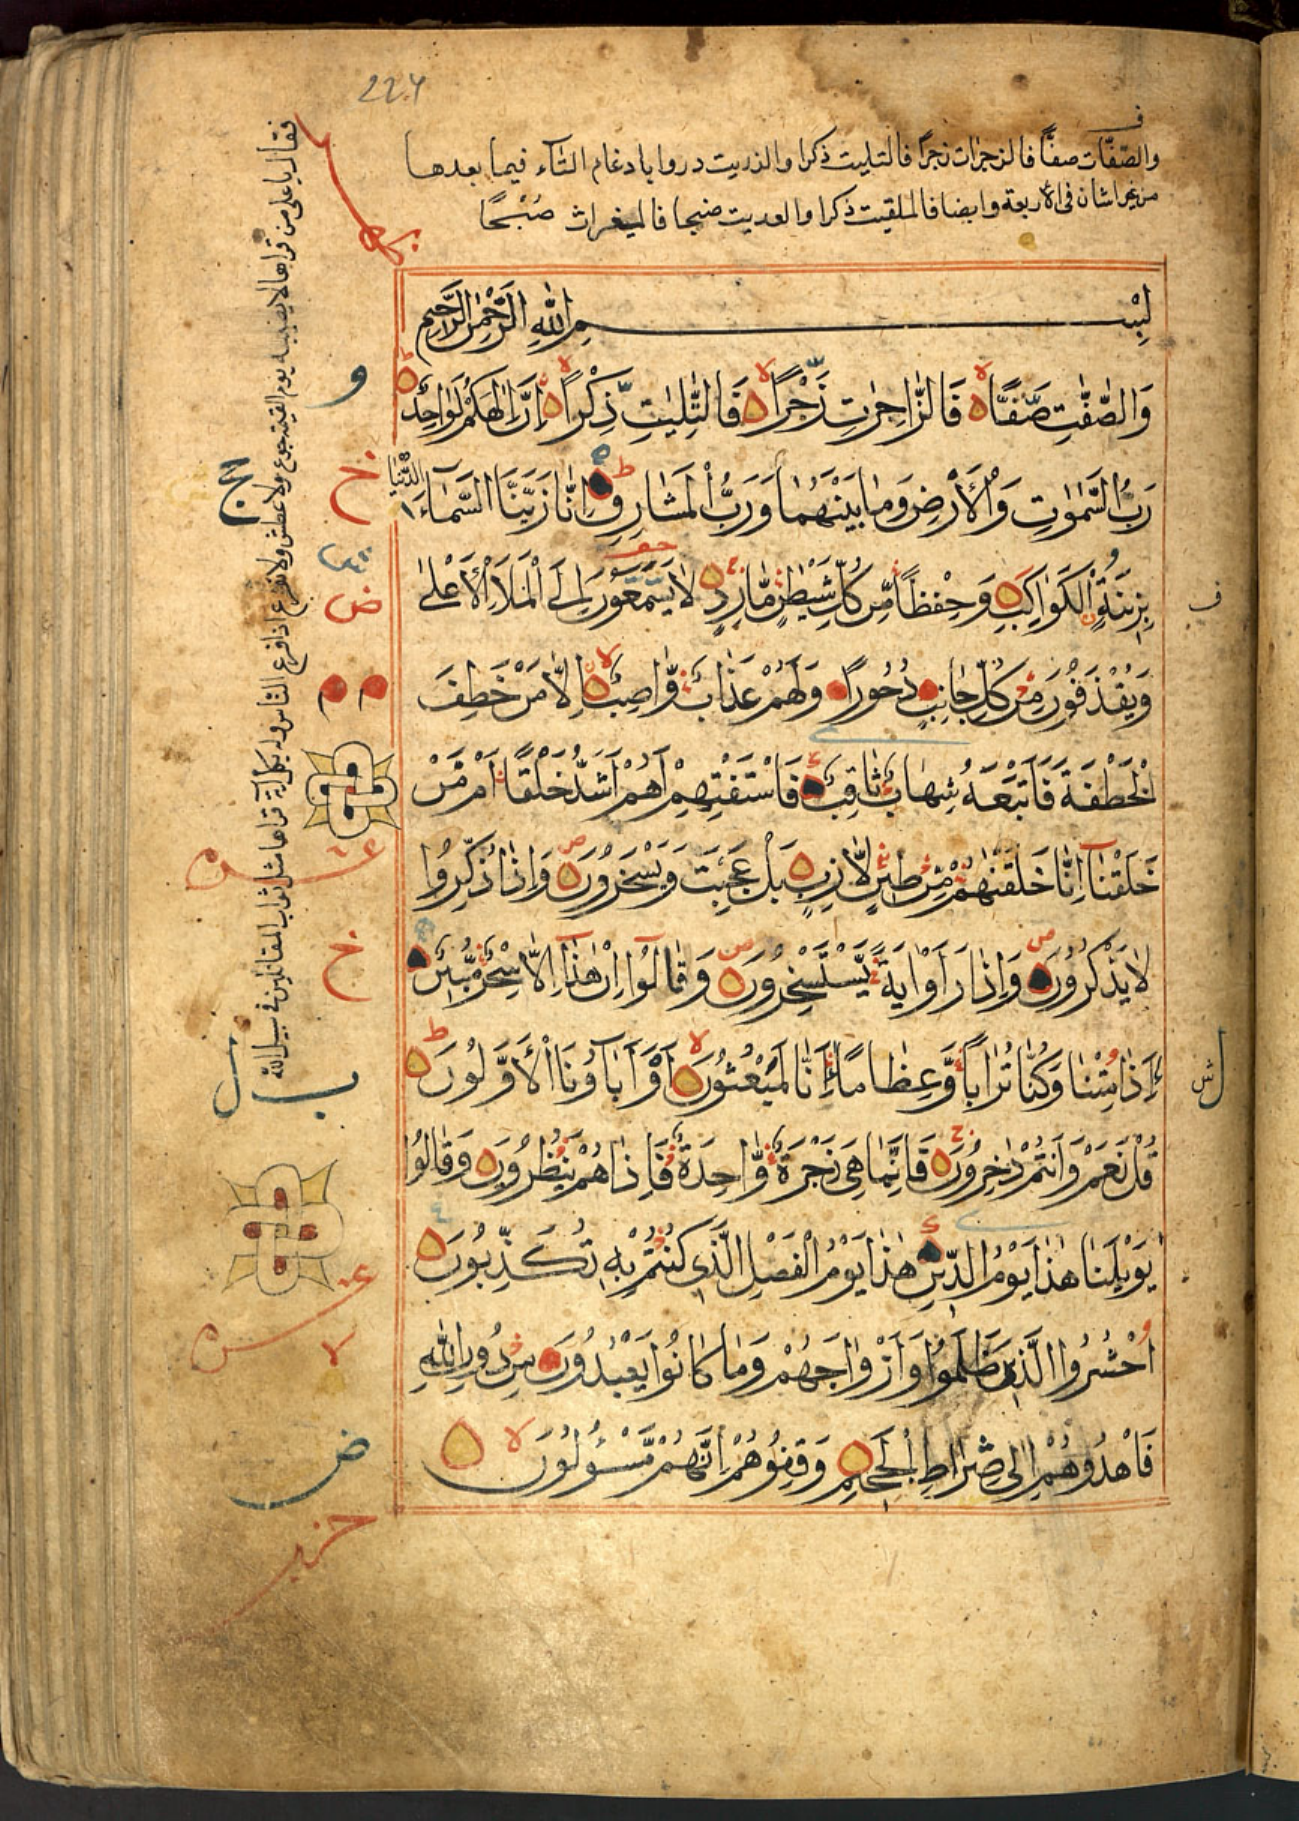 224
والصفات صفا فالزجرات زجرا فالتليت ذكرا والذريت دروا بادغام التاء فيما بعدها
من غير اشان فى الاربعة وايضا فالملقيت ذكرا والعديت ضبحا فالمغيرات صبحا
بِسْمِ اللّٰهِ الرَّحْمٰنِ الرَّحِيمِ
وَالصّٰفّٰتِ صَفًّا فَالزّٰجِرٰتِ زَجْرًا فَالتّٰلِيٰتِ ذِكْرًا اِنَّ اِلٰهَكُمْ لَوَاحِدٌ
رَبُّ السَّمٰوٰتِ وَالْاَرْضِ وَمَا بَيْنَهُمَا وَرَبُّ الْمَشَارِقِ اِنَّا زَيَّنَّا السَّمَآءَ الدُّنْيَا
بِزِينَةٍ الْكَوَاكِبِ وَحِفْظًا مِّن كُلِّ شَيْطٰنٍ مَّارِدٍ لَا يَسَّمَّعُونَ اِلَى الْمَلَاِ الْاَعْلٰى
وَيُقْذَفُونَ مِن كُلِّ جَانِبٍ دُحُورًا وَلَهُمْ عَذَابٌ وَّاصِبٌ اِلَّا مَنْ خَطِفَ
الْخَطْفَةَ فَاَتْبَعَهُ شِهَابٌ ثَاقِبٌ فَاسْتَفْتِهِمْ اَهُمْ اَشَدُّ خَلْقًا اَم مَّنْ
خَلَقْنَآ اِنَّا خَلَقْنٰهُم مِّن طِينٍ لَّازِبٍ بَلْ عَجِبْتَ وَيَسْخَرُونَ وَاِذَا ذُكِّرُوا
لَا يَذْكُرُونَ وَاِذَا رَاَوْا اٰيَةً يَّسْتَسْخِرُونَ وَقَالُوٓا اِنْ هٰذَآ اِلَّا سِحْرٌ مُّبِينٌ
ءَاِذَا مِتْنَا وَكُنَّا تُرَابًا وَّعِظَامًا ءَاِنَّا لَمَبْعُوثُونَ اَوَاٰبَآؤُنَا الْاَوَّلُونَ
قُلْ نَعَمْ وَاَنتُمْ دٰخِرُونَ فَاِنَّمَا هِىَ زَجْرَةٌ وَّاحِدَةٌ فَاِذَا هُمْ يَنظُرُونَ وَقَالُوا
يٰوَيْلَنَا هٰذَا يَوْمُ الدِّينِ هٰذَا يَوْمُ الْفَصْلِ الَّذِى كُنتُم بِهِ تُكَذِّبُونَ
اُحْشُرُوا الَّذِينَ ظَلَمُوا وَاَزْوٰجَهُمْ وَمَا كَانُوا يَعْبُدُونَ مِن دُونِ اللّٰهِ
فَاهْدُوهُمْ اِلٰى صِرَاطِ الْجَحِيمِ وَقِفُوهُمْ اِنَّهُم مَّسْـُٔولُونَ
فقال يا على من قراها لا يصيبه يوم القيمة جوع ولا عطش ولا يفزع اذا فزع الناس وله بكل آية قراها مثل ثواب المقاتلين فى سبيل الله